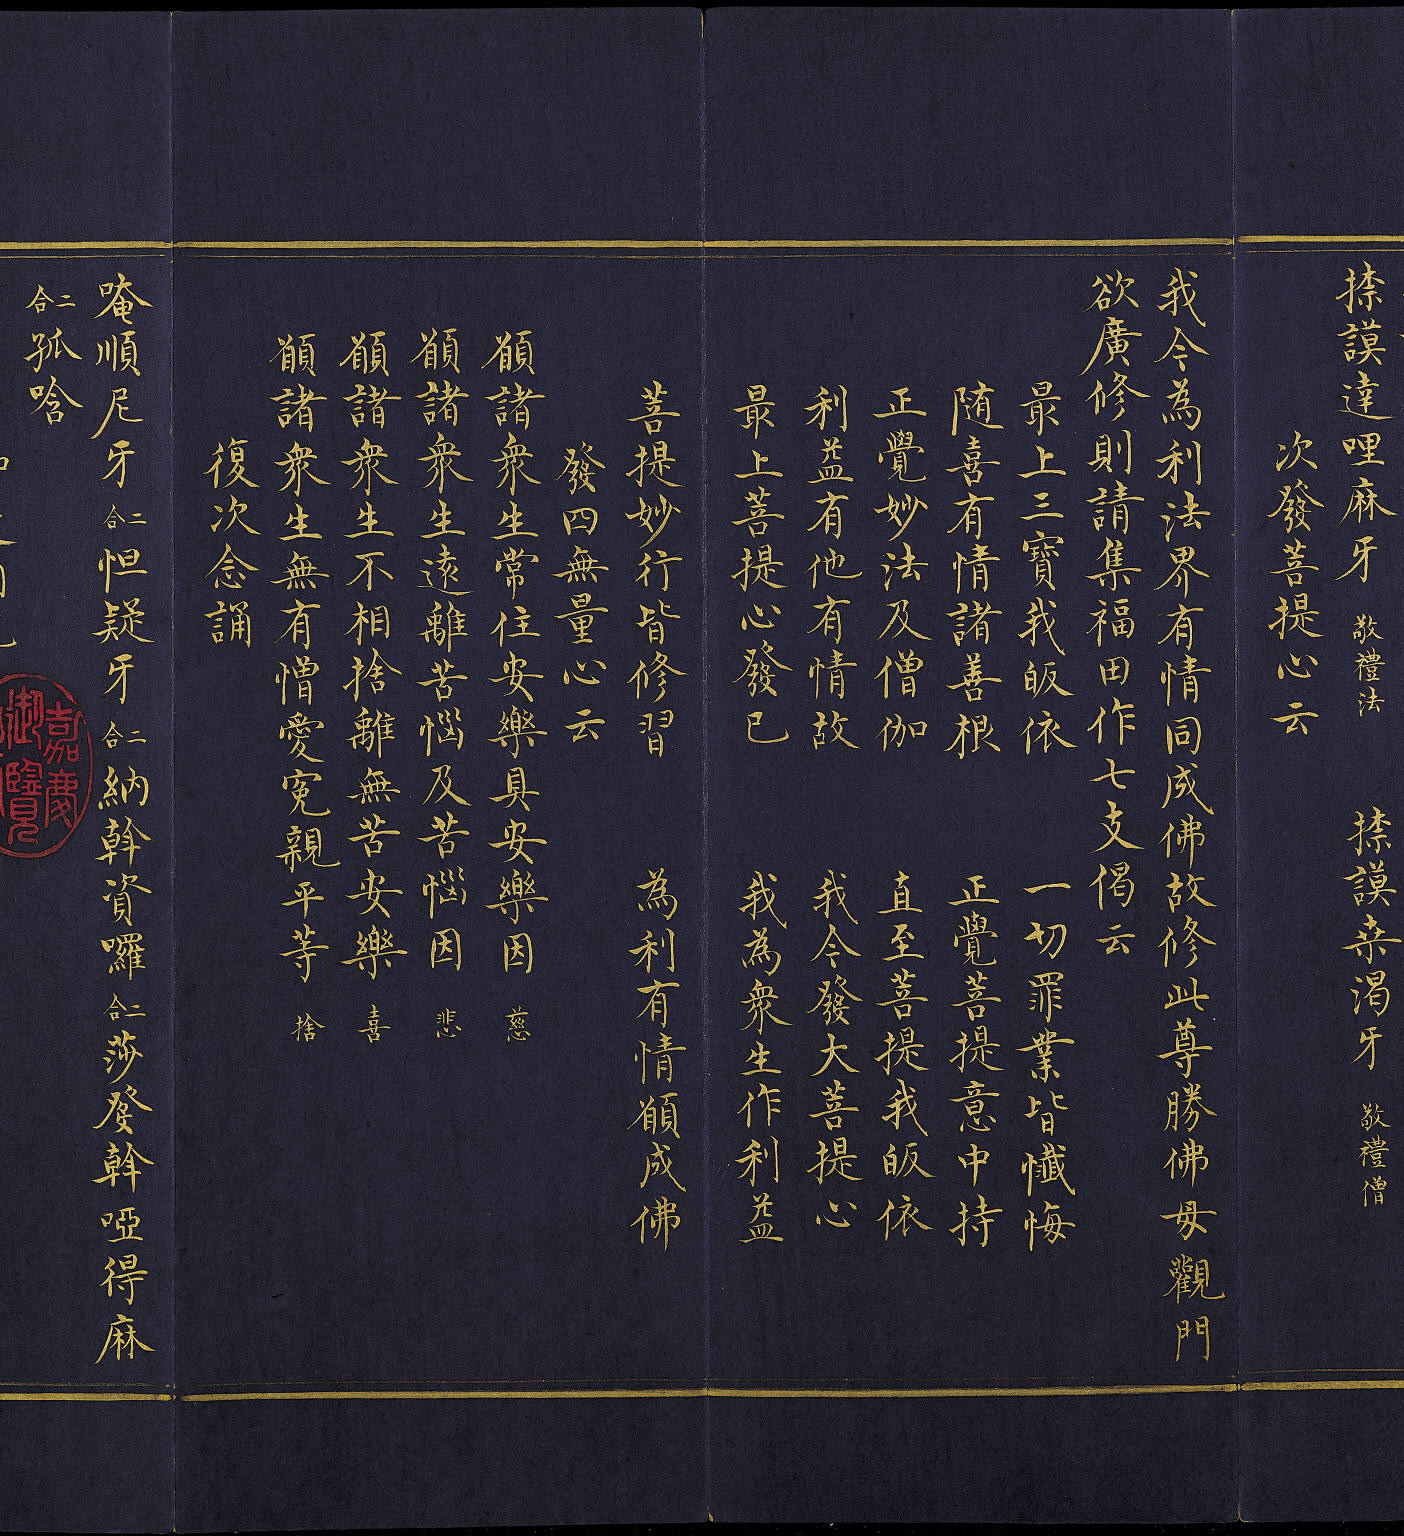 捺謨達哩麻牙 敬禮法 捺謨桒渴牙 敬禮僧
次發菩提心云
我今為利法界有情同成佛故修此尊勝佛母觀門
欲廣修則請集福田作七支偈云
最上三寶我皈依 一切罪業皆懺悔
随喜有情諸善根 正覺菩提意中持
正覺妙法及僧伽 直至菩提我皈依
利益有他有情故 我今發大菩提心
最上菩提心發已 我為衆生作利益
菩提妙行皆修習 為利有情願成佛
發四無量心云
願諸衆生常住安樂具安樂因 慈
願諸衆生遠離苦惱及苦惱因 悲
願諸衆生不相捨離無苦安樂 喜
願諸衆生無有憎愛寃親平等 捨
復次念誦
唵順尼牙二合怛疑牙二合納斡資囉二合莎發斡啞得麻
二合孤唅
嘉慶御覽